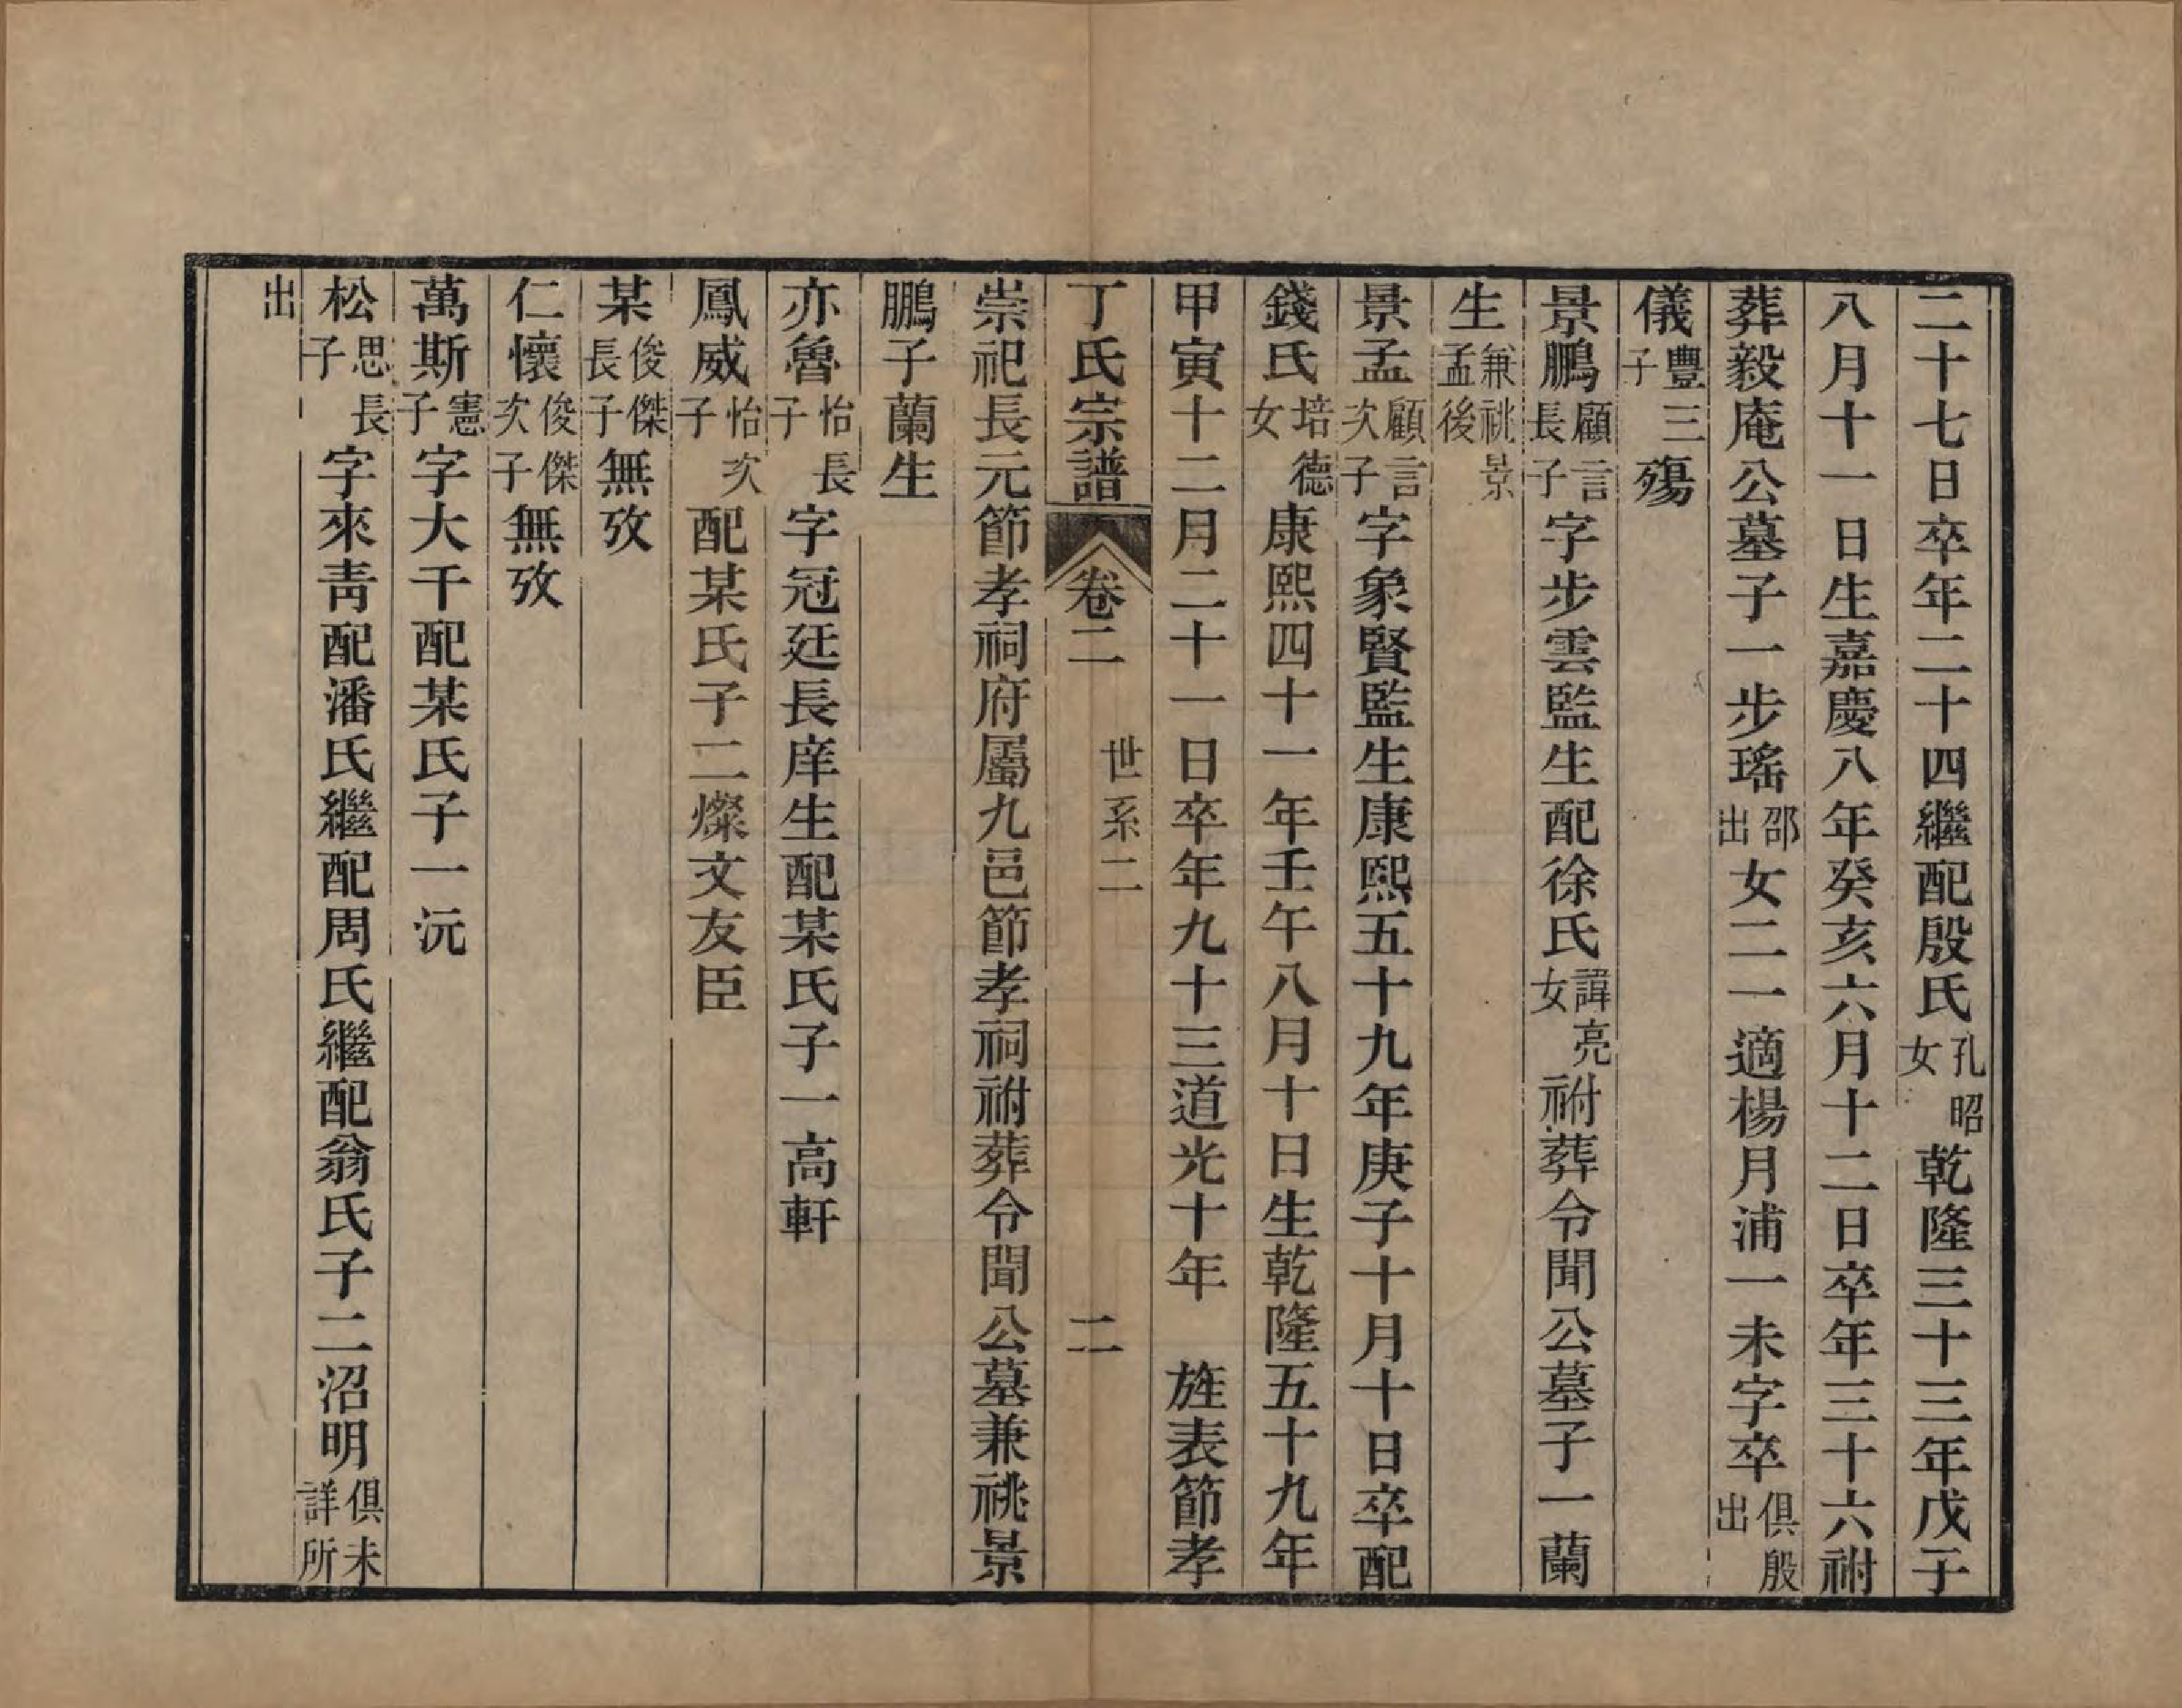 二十七日卒年二十四繼配殷氏孔昭女乾隆三十三年戊子
八月十一日生嘉慶八年癸亥六月十二日卒年三十六祔
葬毅庵公墓子一步瑤邵出女二一適楊月浦一未字卒俱殷出
儀豐三子殤
景鵬顧言長子字步雲監生配徐氏諱亮女祔葬令聞公墓子一蘭
生兼祧景孟後
景孟顧言次子字象賢監生康熙五十九年庚子十月十日卒配
錢氏培德女康熙四十一年壬午八月十日生乾隆五十九年
甲寅十二月二十一日卒年九十三道光十年　旌表節孝
丁氏宗譜　卷二　世系二　二
崇祀長元節孝祠府屬九邑節孝祠祔葬令聞公墓兼祧景
鵬子蘭生
亦魯怡長子字冠廷長庠生配某氏子一高軒
鳳威怡次子配某氏子二燦文友臣
某俊傑長子無攷
仁懷俊傑次子無攷
萬斯憲子字大千配某氏子一沅
松思長子字來靑配潘氏繼配周氏繼配翁氏子二沼明俱未詳所
出